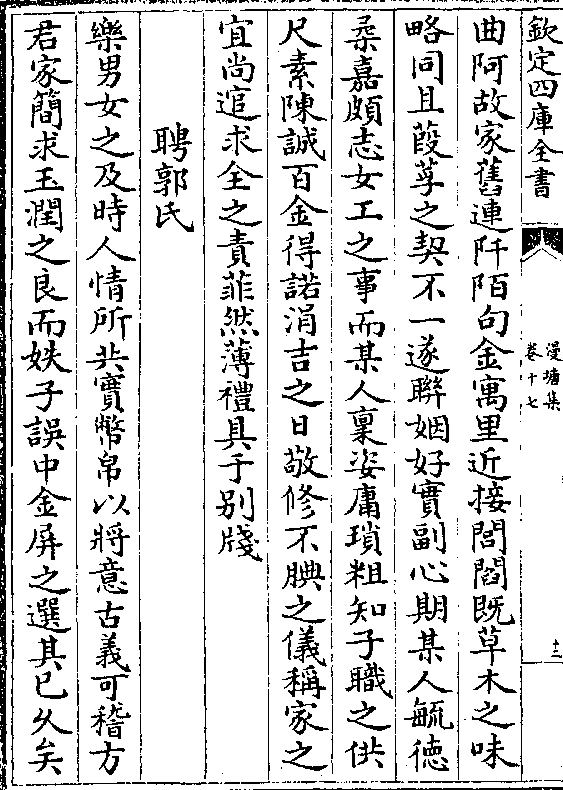 欽定四庫全書
漫塘集
卷十七
十二
曲阿故家舊連阡陌句金寓里近接閭閻既草木之味
略同且葭莩之契不一遂聯姻好實副心期某人毓德
桑嘉頗志女工之事而某人稟姿庸瑣粗知子職之供
尺素陳誠百金得諾涓吉之日敬修不腆之儀稱家之
宜尚逭求全之責菲然薄禮具于别牋
聘郭氏
樂男女之及時人情所共實幣帛以將意古義可稽方
君家簡求玉潤之良而姪子誤中金屏之選其已久矣